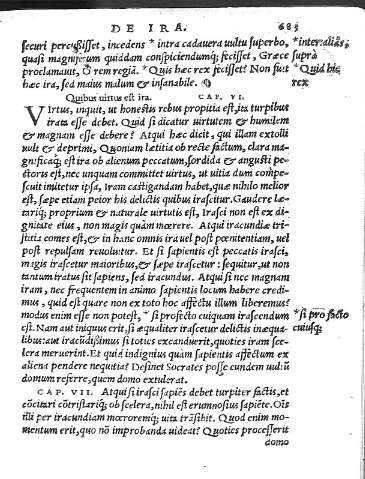 DE IRA. 685
securi percußisset, incedens * intra cadauera uultu superbo, * inter alias;
quasi magnificum quiddam conspiciendumq; fecisset, Græce suprà
proclamauit, O rem regiā. * Quis hæc rex fecisset? Non fuit * Quid hic
hæc ira, sed maius malum & insanabile. rex
Quibus uirtus est ira. CAP. VI.
VIrtus, inquit, ut honestis rebus propitia est, ita turpibus
irata esse debet. Quid si dicatur uirtutem & humilem
& magnam esse debere? Atqui hæc dicit, qui illam extolli
uult & deprimi, Quoniam lætitia ob recte factum, clara ma-
gnificaq; est ira ob alienum peccatum, sordida & angusti pe-
ctoris est, nec unquam committet uirtus, ut uitia dum compe-
scuit imitetur ipsa, iram castigandam habet, quæ nihilo melior
est, sæpe etiam peior his delictis quibus irascitur. Gaudere læ-
tariq; proprium & naturale uirtutis est, irasci non est ex di-
gnitate eius, non magis quàm mœrere. Atqui iracundiæ tri-
stitia comes est, & in hanc omnis ira uel post pœnitentiam, uel
post repulsam reuoluitur. Et si sapientis est peccatis irasci,
magis irascetur maioribus, & sæpe irascetur: sequitur, ut non
tantum iratus sit sapiens, sed iracundus. Atqui si nec magnam
iram, nec frequentem in animo sapientis locum habere credi-
mus, quid est quare non ex toto hoc affectu illum liberemus?
modus enim esse non potest, * si profecto cuiquam irascendum * si pro facto
est. Nam aut iniquus erit, si æqualiter irascetur delictis inæqua- cuiusq;
libus: aut iracūdissimus si toties excanduerit, quoties iram sce-
lera meruerint. Et quid indignius quàm sapientis affectum ex
aliena pendere nequitia? Desinet Socrates posse eundem uultū
domum referre, quem domo extulerat.
CAP. VII. Atqui si irasci sapiēs debet turpiter factis, et
cōcitari cōtristariq; ob scelera, nihil est erumnosius sapiēte. Oīs
illi per iracundiam mœroremq; uita trāsibit. Quod enim mo-
mentum erit, quo nō improbanda uideat? Quoties processerit
domo